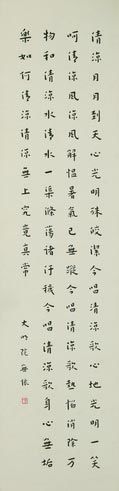 清涼月月到天心光明殊皎潔今唱清涼歌心地光明一笑
呵清涼風涼風解慍暑氣已無蹤今唱清涼歌熱惱消除万
物和清涼水清水一渠滌蕩諸污穢今唱清涼歌身心無垢
樂如何清涼清涼無上究竟真常